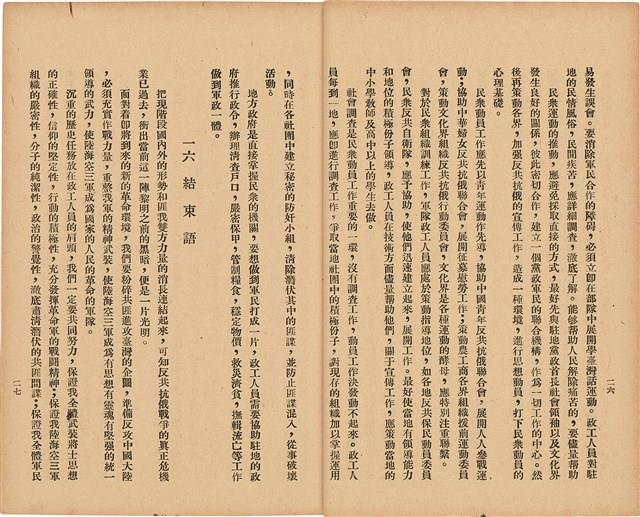 易發生誤會。要消除軍民合作的障碍，必須立卽在部隊中展開學臺灣話運動。政工人員對駐
地的民情風俗，民間疾苦，應詳細調查，澈底了解。能够幫助人民解除痛苦的，要儘量幫助
民衆運動的推動，應避免採取直接的方式，最好先與駐地黨政首長社會領袖以及文化界
發生良好的關係，彼此密切合作，建立一個黨政軍民的聯合機構，作爲一切工作的中心。然
後再策動各界，加强反共抗俄的宣傳工作，造成一種環境，進行思想動員，打下民衆動員的
心理基礎。
民衆動員工作應先以靑年運動作先導，協助中國靑年反共抗俄聯合會，展開人人參戰運
動；協助中華婦女反共抗俄聯合會，展開征募慰勞工作；策動農工商各界組織援前運動委員
會，策動文化界組織反共抗俄行動委員會，文化界是各種運動的酵母，應特別注重聯繫。
對於民衆組織訓練工作，軍隊政工人員應處於策動指導地位，如各地反共保民動員委員
會，民衆反共自衛隊，應予協助，使他們迅速建立起來，展開工作。最好使當地有領導能力
和地位的積極份子領導，政工人員在技術方面儘量幫助他們，關于宣傳工作，應策動當地的
中小學敎師及高中以上的學生去做。
社會調查是民衆動員工作重要的一環，沒有調查工作，動員工作決發動不起來。政工人
員每到一地，應卽進行調查工作，爭取當地社團中的積極份子，對現存的組織加以掌握運用
二六
，同時在各社團中建立秘密的防奸小組，淸除潛伏其中的匪諜，並防止匪諜混入，從事破壞
活動。
地方政府是直接掌握民衆的機關，要想做到軍民打成一片，政工人員需要協助駐地的政
府推行政令，辦理淸查戶口，嚴密保甲，管制糧食，穩定物價，救災濟貧，撫輯流亡等工作
做到軍政一體。
一六 結束語
把現階段國內外的形勢和匪我雙方力量的消長連結起來，可知反共抗俄戰爭的眞正危機
業已過去，衝出當前這一陣黎明之前的黑暗，便是一片光明。
面對着卽將到來的新的革命環境，我們要粉碎共匪進攻臺灣的企圖，準備反攻中國大陸
，必須充實作戰力量，重整我軍的精神武裝，使陸海空三軍成爲有思想有靈魂有堅强的統一
領導的武力，使陸海空三軍成爲國家的人民的革命的軍隊。
沉重的歷史任務放在政工人員的肩頭，我們一定要共同努力，保證我全體武裝將士思想
的正確性，信仰的堅定性，行動的積極性，充分發揮革命軍的戰鬪精神；保證我陸海空三軍
組織的嚴密性，分子的純潔性，政治的警覺性，澈底肅淸潛伏的共匪間諜；保證我全體軍民
二七